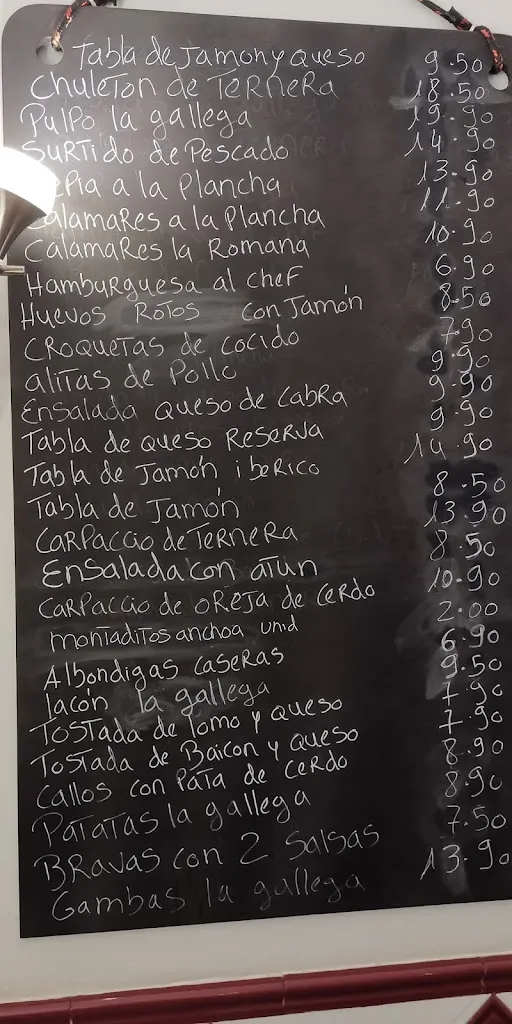 Tabla de Jamon y queso 9.50
Chuleton de Ternera 18.50
Pulpo la gallega 19.90
Surtido de Pescado 14.90
epia a la Plancha 13.90
alamares a la Plancha 11.90
Calamares la Romana 10.90
Hamburguesa al chef 6.90
Huevos Rotos con Jamón 8.50
Croquetas de cocido 7.90
alitas de Pollo 9.90
Ensalada queso de cabra 9.90
Tabla de queso Reserva 9.90
Tabla de Jamón iberico 14.90
Tabla de Jamón 8.50
Carpaccio de Ternera 13.90
Ensalada con atun 8.50
Carpaccio de oreja de cerdo 10.90
montaditos anchoa unid 2.00
Albondigas caseras 6.90
lacón la gallega 9.50
Tostada de lomo y queso 7.90
Tostada de Baicon y queso 7.90
Callos con Pata de cerdo 8.90
Patatas la gallega 8.90
Bravas con 2 salsas 7.50
Gambas la gallega 13.90